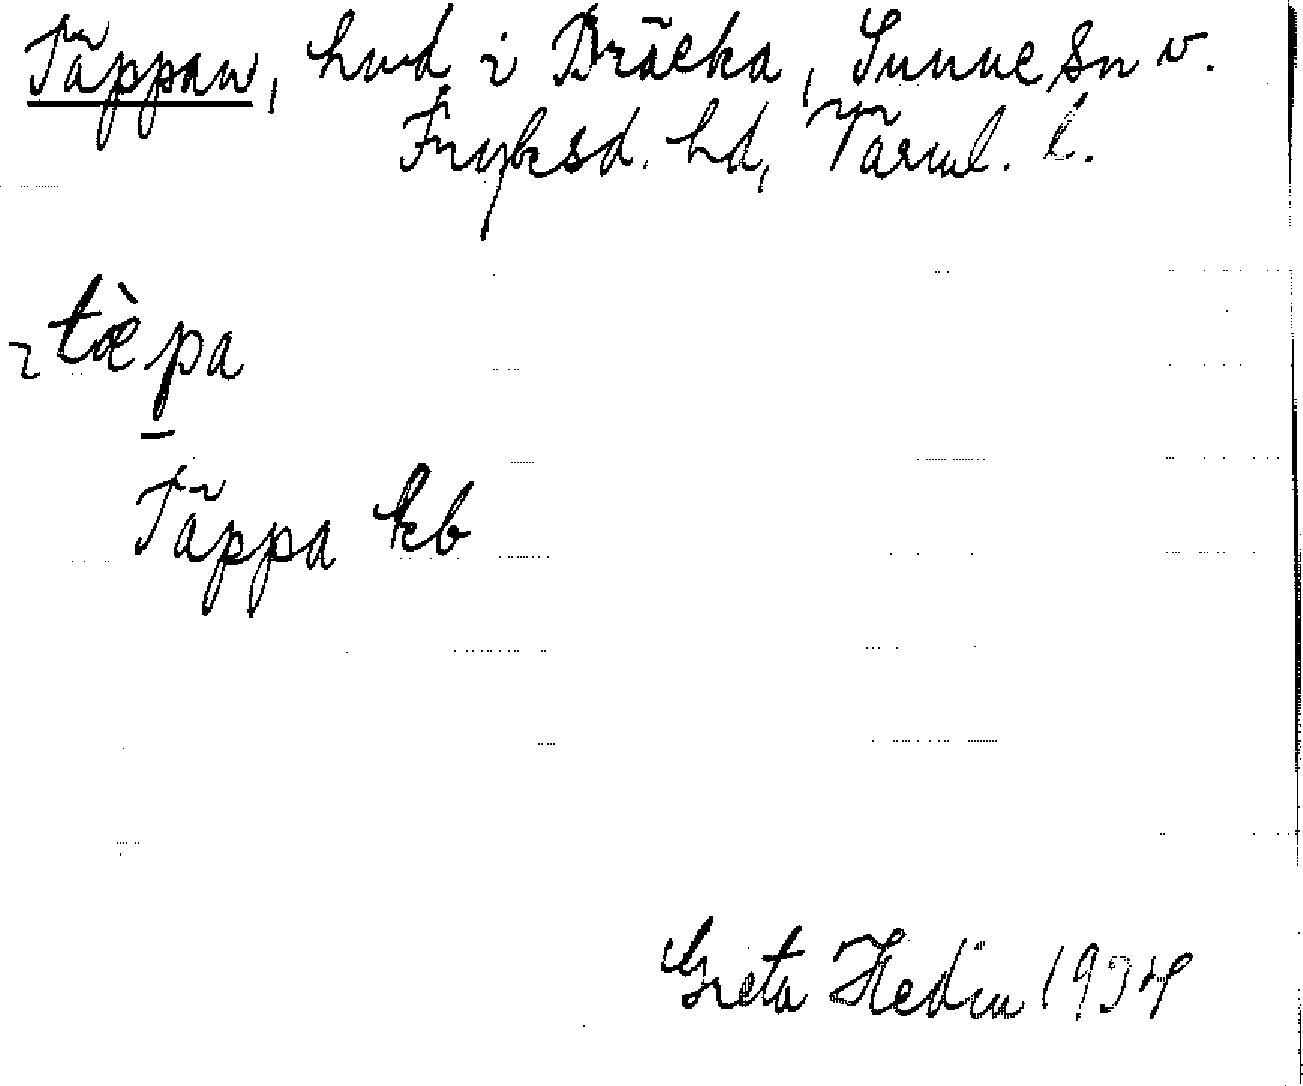 Täppan, hvd i Bräcka, Sunne sn v.
Fryksd. hd, Värml. l.
tæ̀pa
Täppa kb
Greta Hedin 1934